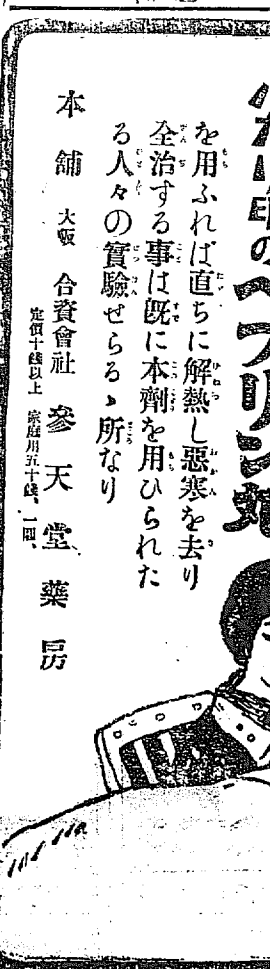 印のヘブリン丸
を用ふれば直ちに解熱し惡寒を去り
全治する事は既に本劑を用ひられた
る人々の實驗せらるゝ所なり
本舖 大阪 合資會社 參天堂藥房
定價十錢以上 家庭用五十錢、一圓、